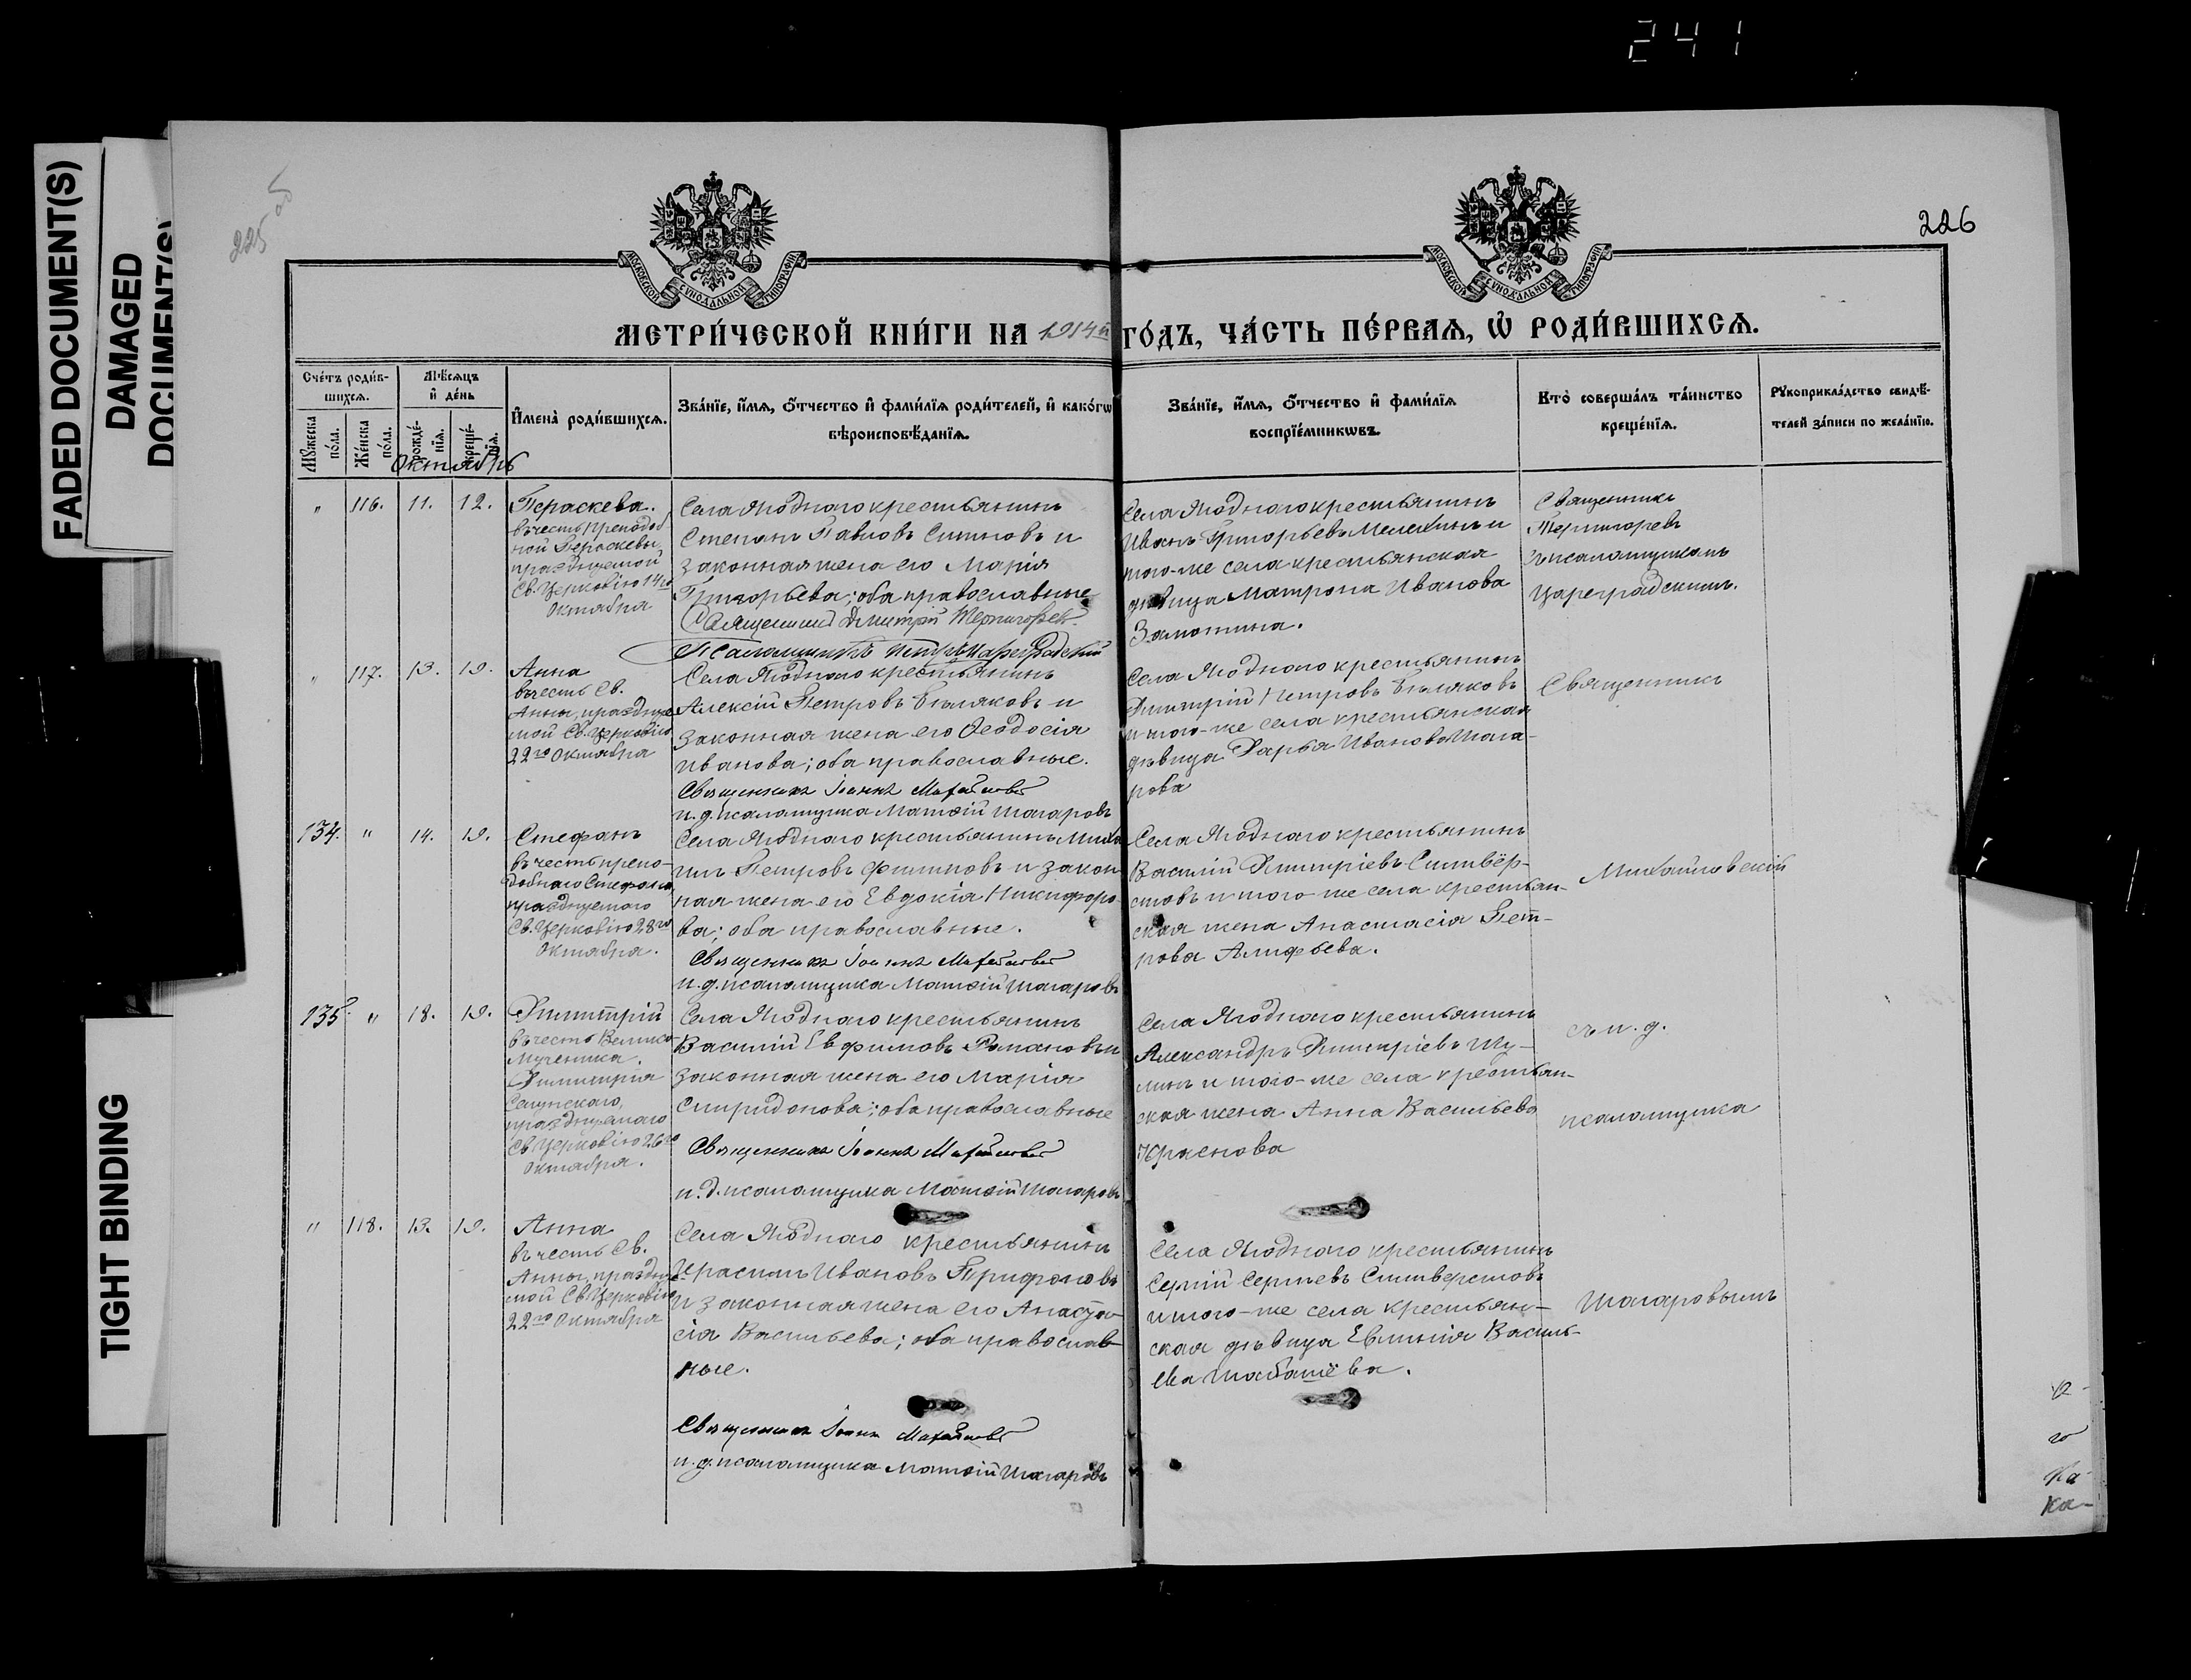 241
FADED DOCUMENT(S)
DAMAGED
DOCUMENT(S)
TIGHT BINDING
225 об
226
МОСКОВСКОЙ СѴНОДАЛЬНОЙ ТИПОГРАФІИ
МОСКОВСКОЙ СѴНОДАЛЬНОЙ ТИПОГРАФІИ
МЕТРИ́ЧЕСКОЙ КНИ́ГИ НА 1914й ГО́ДЪ, ЧА́СТЬ ПЕ́РВАѦ, Ѡ҆ РОДИ́ВШИХСѦ.
Сче́тъ роди́в-
шихсѧ.
Мꙋ́жеска по́ла.
Же́нска по́ла.
Мѣ́сѧцъ
и҆ де́нь
рожде́-
нїѧ.
креще́-
нїѧ.
И҆мена̀ роди́вшихсѧ.
Зва́нїе, и҆́мѧ, ѻ҆́тчество и҆ фами́лїѧ роди́телей, и҆ како́гѡ
вѣроисповѣ́данїѧ.
Зва́нїе, и҆́мѧ, ѻ҆́тчество и҆ фами́лїѧ
воспрїе́мникѡвъ.
Кто̀ соверша́лъ та́инство
креще́нїѧ.
Рꙋкоприкла́дство свидѣ́-
телей за́писи по жела́нїю.
Октябрь
" 116. 11. 12.
Пераскева.
въ честь Преподоб
ной Пераскевы,
празднуемой
Св. Церковію 14го
Октября
Села Ягоднаго крестьянинъ
Степанъ Павловъ Ситновъ и
законная жена его Марія
Григорьева; оба православные
Священникъ Дмитрій Терпигоревъ.
Псаломщикъ Петръ Цареградскій
Села Ягоднаго крестьянинъ
Иванъ Григорьевъ Мелехинъ и
того-же села крестьянская
дѣвица Матрона Иванова
Замотина.
Священникъ
Терпигоревъ
съ псаломщикомъ
Цареградскимъ.
" 117. 13. 19.
Анна
въ честь Св.
Анны, празднуе
мой Св. Церковію
22го Октября
Села Ягоднаго крестьянинъ
Алексій Петровъ Бѣляковъ и
законная жена его Ѳеодосія
Иванова; оба православные.
Священникъ Іоаннъ Михайловскій
и. д. псаломщика Матѳій Шагаровъ
Села Ягоднаго крестьянинъ
Димитрій Петровъ Бѣляковъ
и того-же села крестьянская
дѣвица Дарья Иванова Шага-
рова
Священникъ
134. " 14. 19.
Стефанъ
въ честь препо-
добнаго Стефана,
празднуемаго
Св. Церковію 28го
Октября.
Села Ягоднаго крестьянинъ Миха
илъ Петровъ Филиповъ и закон
ная жена его Евдокія Никифоро
ва; оба православные.
Священникъ Іоаннъ Михайловскій
и. д. псаломщика Матѳій Шагаровъ
Села Ягоднаго крестьянинъ
Василій Димитріевъ Силивёр-
стовъ и того-же села крестьян-
ская жена Анастасія Пет-
рова Алифьева.
Михайловскій
135. " 18. 19.
Димитрій
въ честь Велико
Мученика
Димитрія
Селунскаго,
празднуемаго
Св. Церковію 26го
Октября.
Села Ягоднаго крестьянинъ
Василій Евфимовъ Романовъ и
законная жена его Марія
Спиридонова; оба православные
Священникъ Іоаннъ Михайловскій
и. д. псаломщика Матѳій Шагаровъ
Села Ягоднаго крестьянинъ
Александръ Димитріевъ Шу-
линъ и того-же села крестьян-
ская жена Анна Васильева
Краснова
съ и. д.
псаломщика
" 118. 13. 19.
Анна
въ честь Св.
Анны, празднуе
мой Св. Церковію
22го Октября
Села Ягоднаго крестьянинъ
Герасимъ Ивановъ Трифоновъ
и законная жена его Анаста-
сія Васильева; оба православ-
ные.
Священникъ Іоаннъ Михайловскій
и. д. псаломщика Матѳій Шагаровъ
Села Ягоднаго крестьянинъ
Сергій Сергѣевъ Силиверстовъ
и того-же села крестьян-
ская дѣвица Евлинія Василь-
ева Шабашёва.
Шагаровымъ
го
ка-